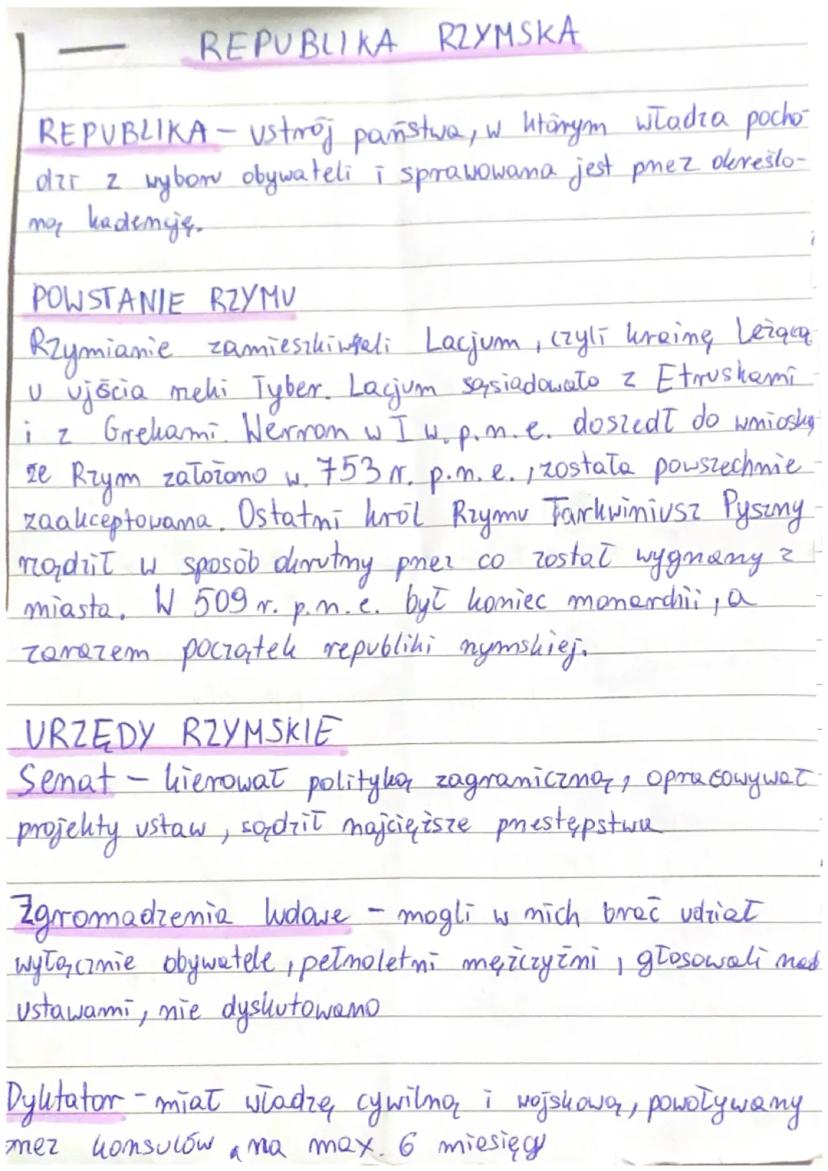 REPUBLIKA RZYMSKA
REPUBLIKA - ustrój państwa, w którym władza pocho-
dzi z wyboru obywateli i sprawowana jest przez określo-
ną kadencję.
POWSTANIE RZYMU
Rzymianie zamieszkiwali Lacjum, czyli krainę leżącą
u ujścia rzeki Tyber. Lacjum sąsiadowało z Etruskami
i z Grekami. Werron w I w. p.n.e. doszedł do wniosku
że Rzym założono w. 753 r. p.n.e., została powszechnie
zaakceptowana. Ostatni król Rzymu Tarkwiniusz Pyszny
rządził w sposób okrutny przez co został wygnany z
miasta. W 509 r. p.n.e. był koniec monarchii, a
zarazem początek republiki rzymskiej.
URZĘDY RZYMSKIE
Senat - kierował polityką zagraniczną, opracowywał
projekty ustaw, sądził najcięższe przestępstwa
Zgromadzenia ludowe - mogli w nich brać udział
wyłącznie obywatele, pełnoletni mężczyźni, głosowali nad
ustawami, nie dyskutowano
Dyktator - miał władzę cywilną i wojskową, powoływany
przez konsulów, na max. 6 miesięcy